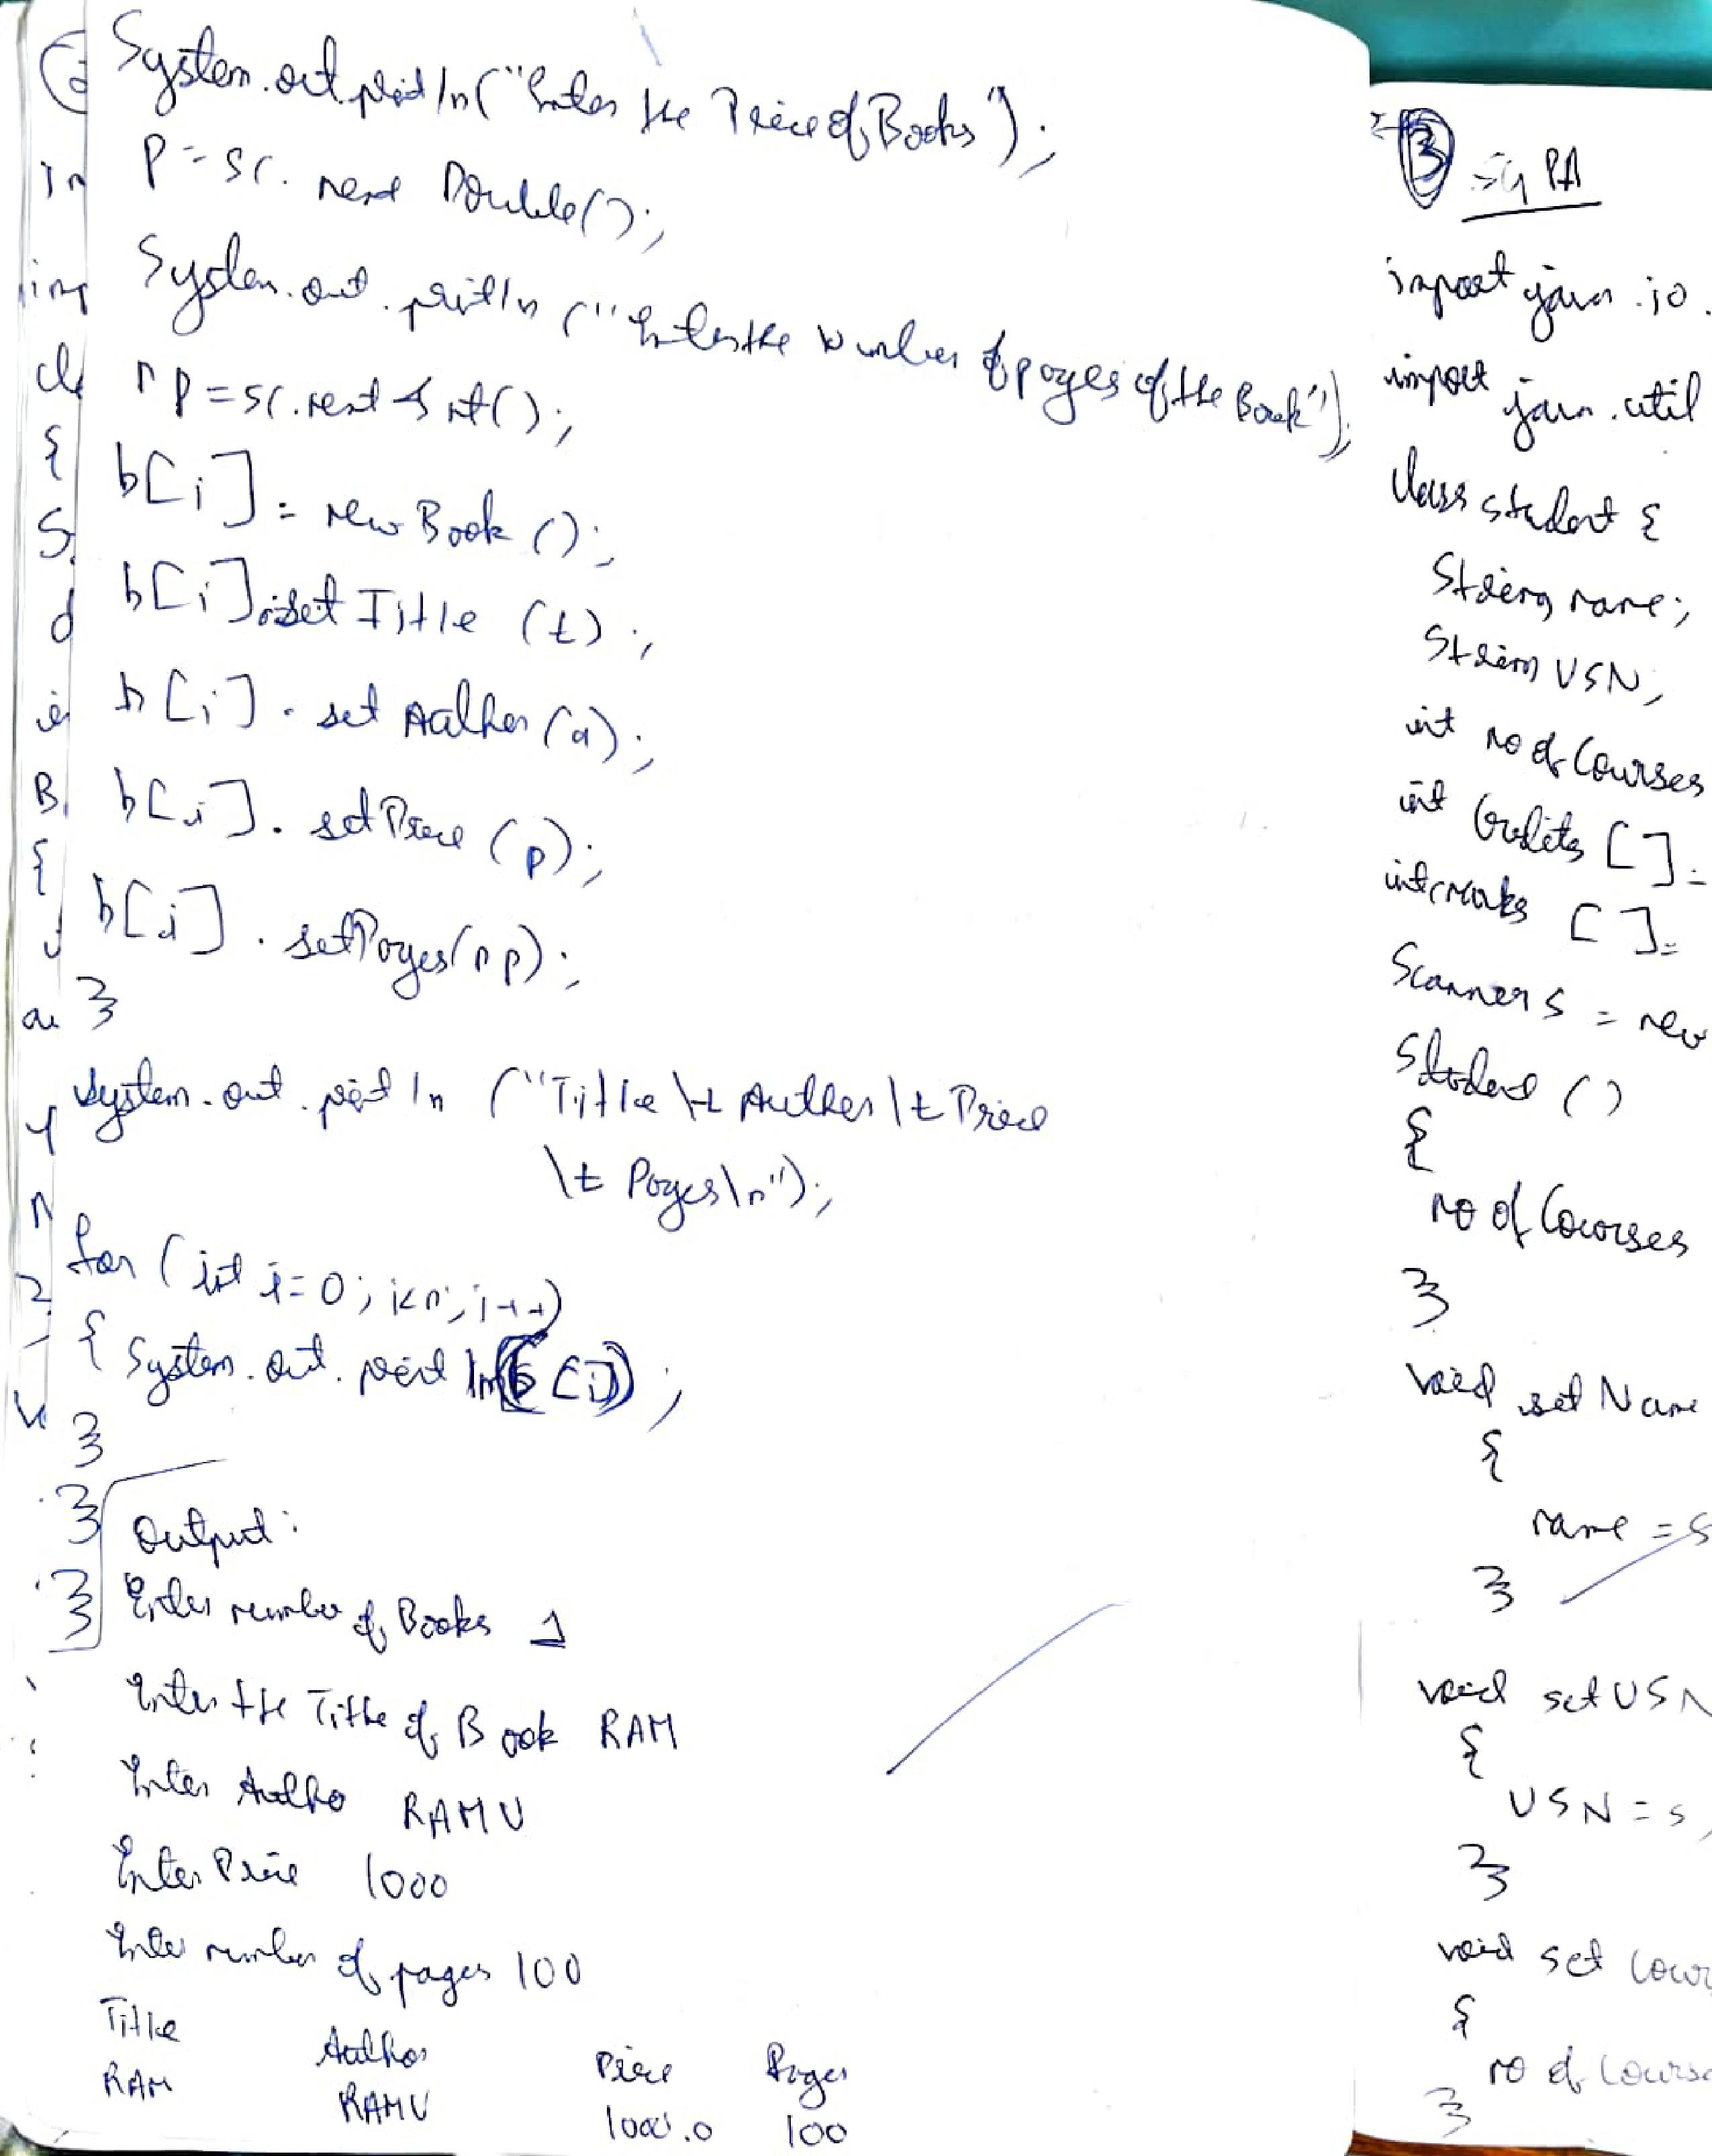 System.out.println("Enter the Price of Books");
p = sc. next Double();
System.out.println ("Enter the Number of pages of the Book");
np = sc.next Int();
b[i] = new Book ();
b[i].set Title (t);
b[i]. set Author (a);
b[i]. setPrice (p);
b[i]. setPages(np);
}
System.out.println ("Title \t Author \t Price
\t Pages\n");
for (int i=0; i<n; i++)
{ System.out.println(b[i]);
}
}
}
Output:
Enter number of Books 1
Enter the Title of Book RAM
Enter Autho RAMU
Enter Price 1000
Enter number of pages 100
Title Author Price Pages
RAM RAMU 1000.0 100
3 SGPA
import java.io.
import java.util
class student {
String name;
String USN;
int no of Courses
int Credits [ ] =
int marks [ ] =
Scanner s = new
Student ()
{
no of Courses
}
void set Name
{
name = s
}
void set USN
{
USN = s
}
void set Cour
{
no of Course
}